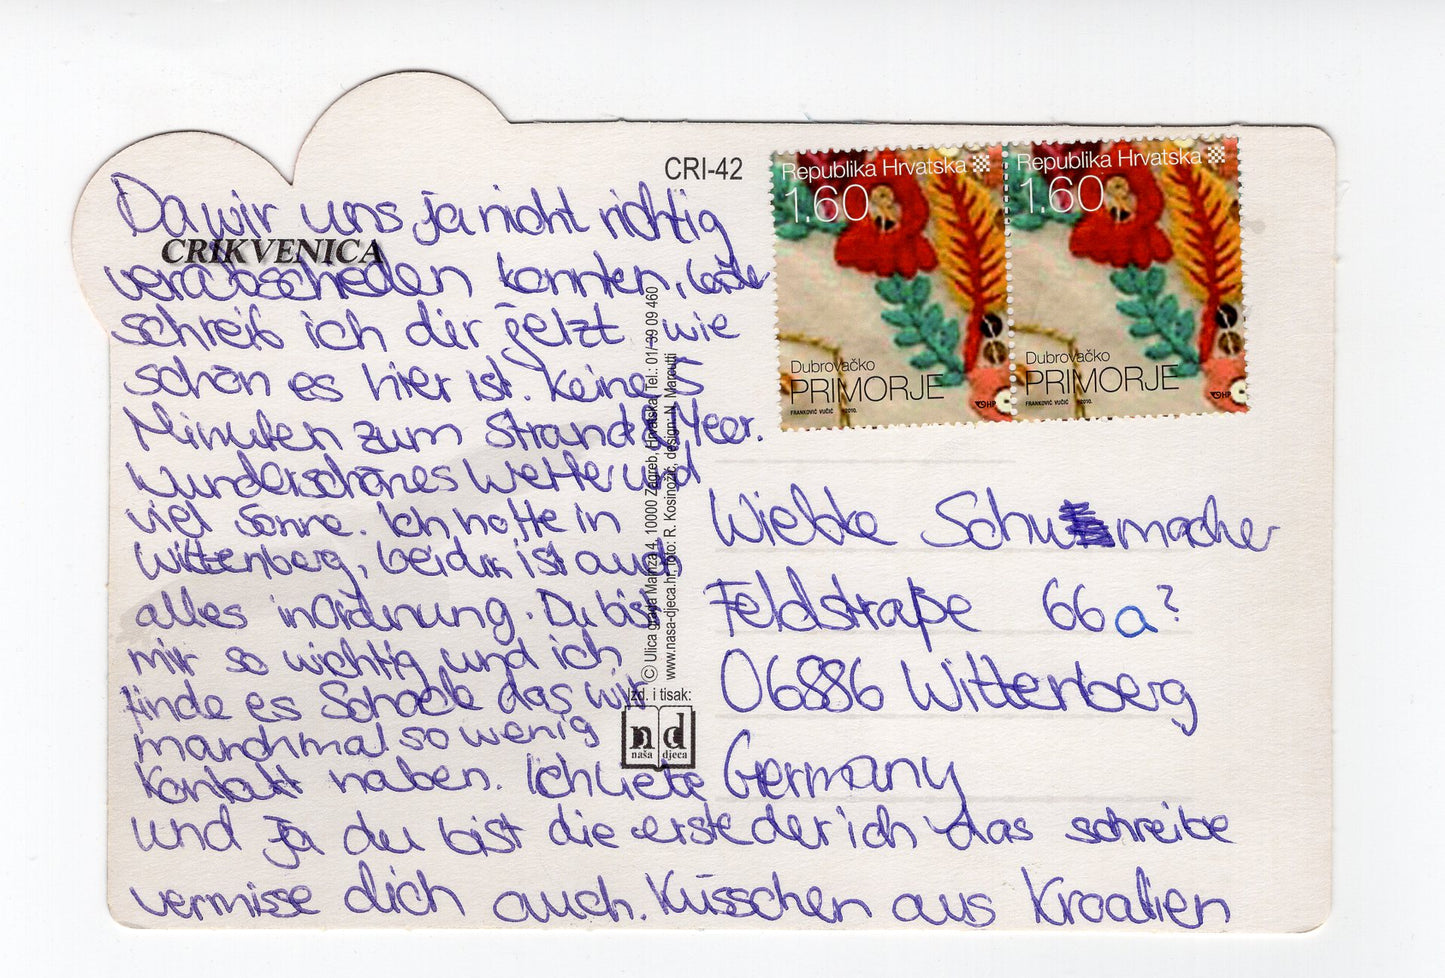 CRI-42
Republika Hrvatska
1.60
Dubrovačko
PRIMORJE
FRANKOVIĆ VUČIĆ ©2010.
HP
Republika Hrvatska
1.60
Dubrovačko
PRIMORJE
FRANKOVIĆ VUČIĆ ©2010.
HP
CRIKVENICA
Da wir uns ja nicht richtig
verabschieden konnten,
schreib ich dir jetzt wie
schön es hier ist. Keine 5
Minuten zum Strand & Meer.
Wunderschönes Wetter und
viel Sonne. Ich hoffe in
Wittenberg, bei dir ist auch
alles in Ordnung. Du bist
mir so wichtig und ich
finde es Schade das wir
manchmal so wenig
Kontakt haben. Ich liebe
und ja du bist die erste der ich das schreibe
vermisse dich auch. Küsschen aus Kroatien
© Ulica grada Mainza 4, 10000 Zagreb, Hrvatska, Tel.: 01/ 39 09 460
www.nasa-djeca.hr, foto: R. Kosinožić, design: N. Marautti
Izd. i tisak:
n d
naša djeca
Wiebke Schumacher
Feldstraße 66 a?
06886 Wittenberg
Germany